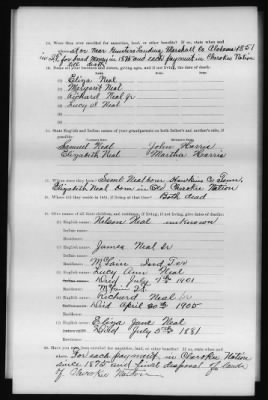 14. Were they ever enrolled for annuities, land, or other benefits? If so, state when and
where: at or near Gunters Landing Marshall Co Alabama 1851
for bread money in 1875 and each payment in Cherokee Nation
till death
15. Name all your brothers and sisters, giving ages, and if not living, the date of death:
Eliza Neal
Margret Neal
Richard Neal Jr
Lucy A Neal
16. State English and Indian names of your grandparents on both father's and mother's side, if possible:
Samuel Neal John Harris
Elizabeth Neal Martha Harris
17. Where were they born? Saml Neal born Hawkins Co Tenn.
Elizabeth Neal born in Old Cherokee Nation
18. Where did they reside in 1851, if living at that time? Both dead
19. Give names of all their children, and residence, if living; if not living, give dates of deaths:
(1) English name: Nelson Neal unknown
Indian name:
Residence:
(2) English name: James Neal Sr
Indian name:
Residence: McLain Ind Ter
(3) English name: Lucy Ann Neal
Indian name: Died July 7th 1901
Residence:
(4) English name: Richard Neal Sr
Indian name: Died April 20th 1905
Residence:
(5) English name: Eliza Jane Neal
Indian name: Died July 5th 1881
Residence:
20. Have you ever been enrolled for annuities, land, or other benefits? If so, state when and
where: For each payment in Cherokee Nation
since 1875 and final disposal of lands
of Cherokee Nation